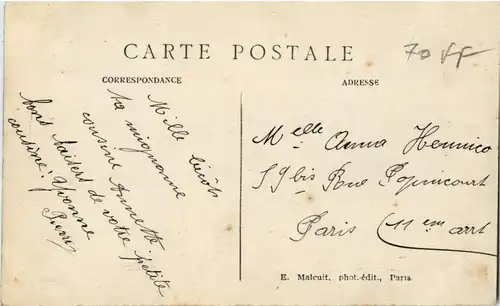 CARTE POSTALE
70 FF
CORRESPONDANCE
ADRESSE
Mille
ta mignonne
cousine Annette
bons baisers de votre petite
cousine Yvonne
Pierre
Melle Anna Hennico
59 bis Rue Popincourt
Paris (11em arrt
E. Malcuit, phot.-édit., Paris.